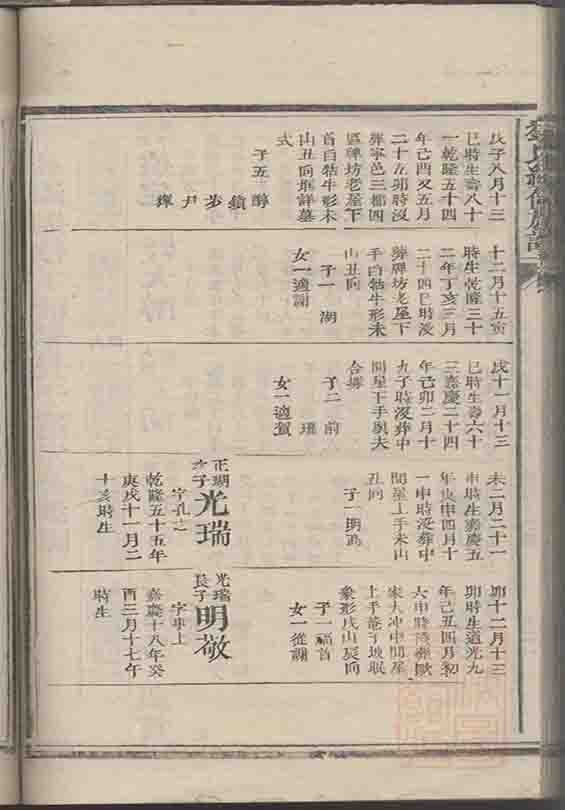 戊子八月十三
巳時生壽八十
一乾隆五十四
年己酉又五月
二十五卯時沒
葬寧邑三都四
區碑坊老屋下
首白牯牛形未
山丑向坵詳墓
式
子五 醇
鎮
步
尹
輝
十二月十五寅
時生乾隆三十
二年丁亥三月
二十四巳時沒
葬碑坊老屋下
手白牯牛形未
山丑向
子一 湖
女一適謝
戊十一月十三
巳時生壽六十
三嘉慶二十四
年己卯二月十
九子時沒葬中
間星下手與夫
合塚
子二 前
女一適賀
未二月二十一
申時生嘉慶五
年庚申四月十
一申時沒葬中
間星上手未山
丑向
子一明高
正瑚
之子 光瑞
字孔芝
乾隆五十五年
庚戌十一月二
十亥時生
卯十二月十三
卯時生道光九
年己丑四月初
六申時沒葬歐
家大冲中間星
上手菴子坡眠
象形戌山辰向
子一福首
女一從謝
光瑞
長子 明敬
嘉慶十八年癸
酉三月十七午
時生